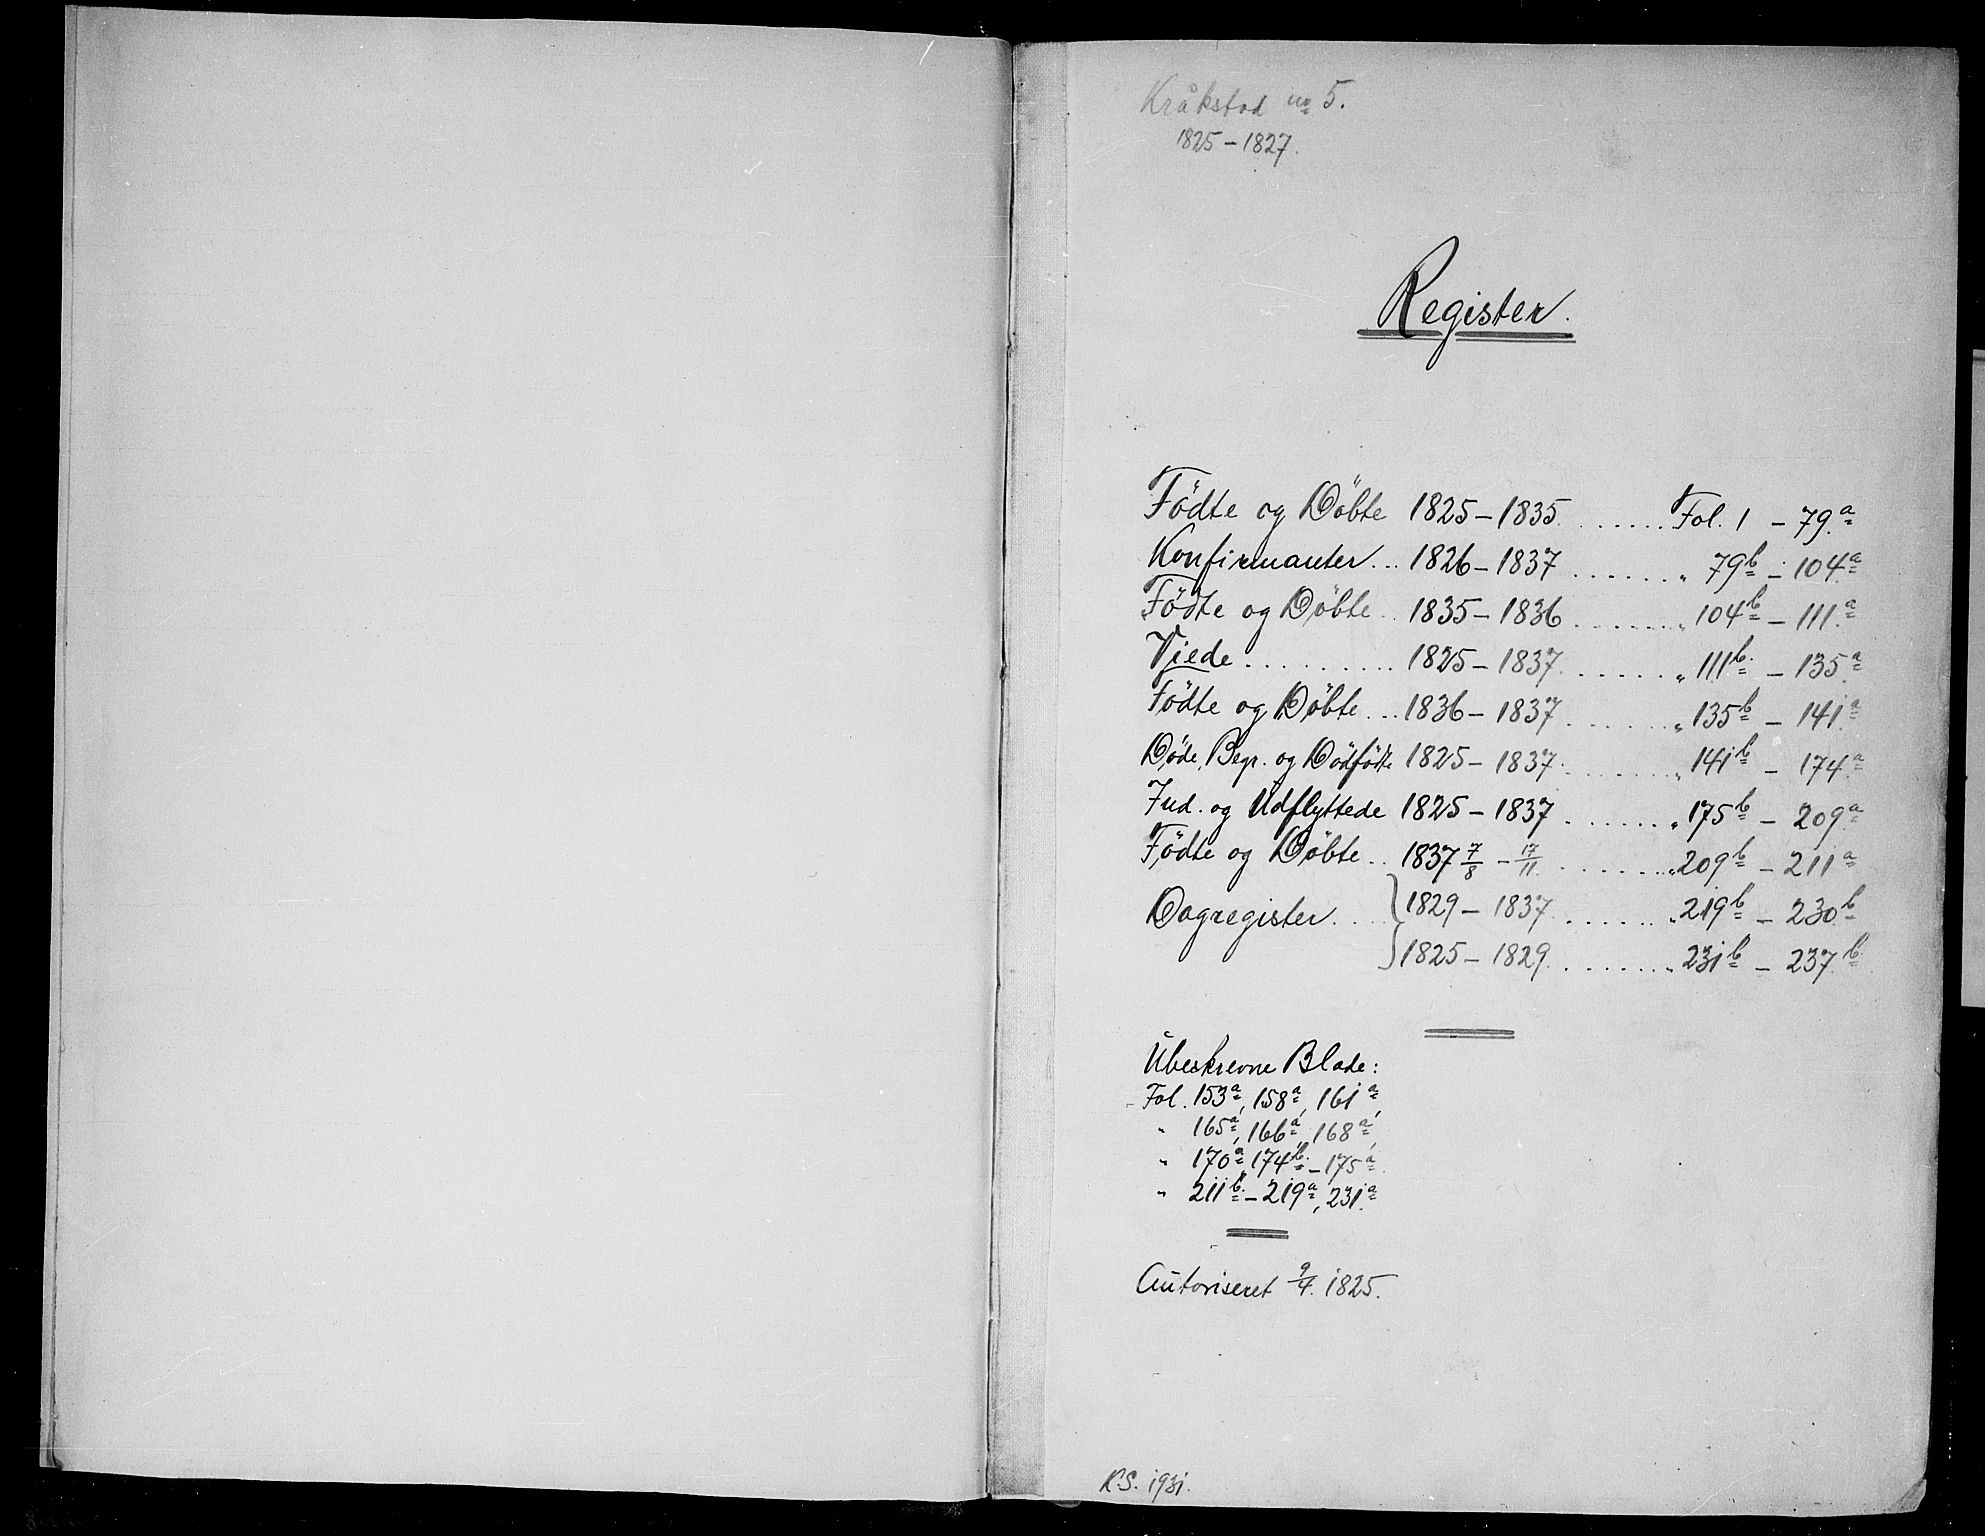 Kråkstad no 5.
1825 – 1827.
Register.
Födte og Döbte 1825 – 1835 ...... Fol. 1 – 79a
Konfirmanter... 1826 – 1837 ....... „ 79b – 104a
Födte og Döbte .. 1835 – 1836 ....... „ 104b – 111a
Viede .......... 1825 – 1837 ....... „ 111b – 135a
Födte og Döbte ... 1836 – 1837 ....... „ 135b – 141a
Döde, Begr. og Dödfödte 1825 – 1837 ....... „ 141b – 174a
Ind. og Udflyttede 1825 – 1837 ....... „ 175b – 209a
Födte og Döbte .. 1837 7/8 – 17/11 ....... „ 209b – 211a
Dagregister .... } 1829 – 1837 ....... „ 219b – 230b
1825 – 1829 ....... „ 231b – 237b
Ubeskrevne Blade:
Fol. 153a, 158a, 161a,
„ 165a, 166a, 168a,
„ 170a, 174b – 175a
„ 211b – 219a, 231a
Autoriseret 9/4. 1825.
K.S. 1931.